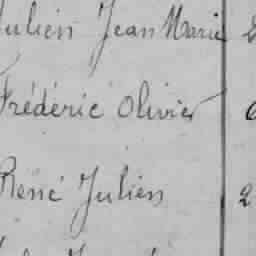 Julien Jean Marie 2
Frédéric Olivier
René Julien 2